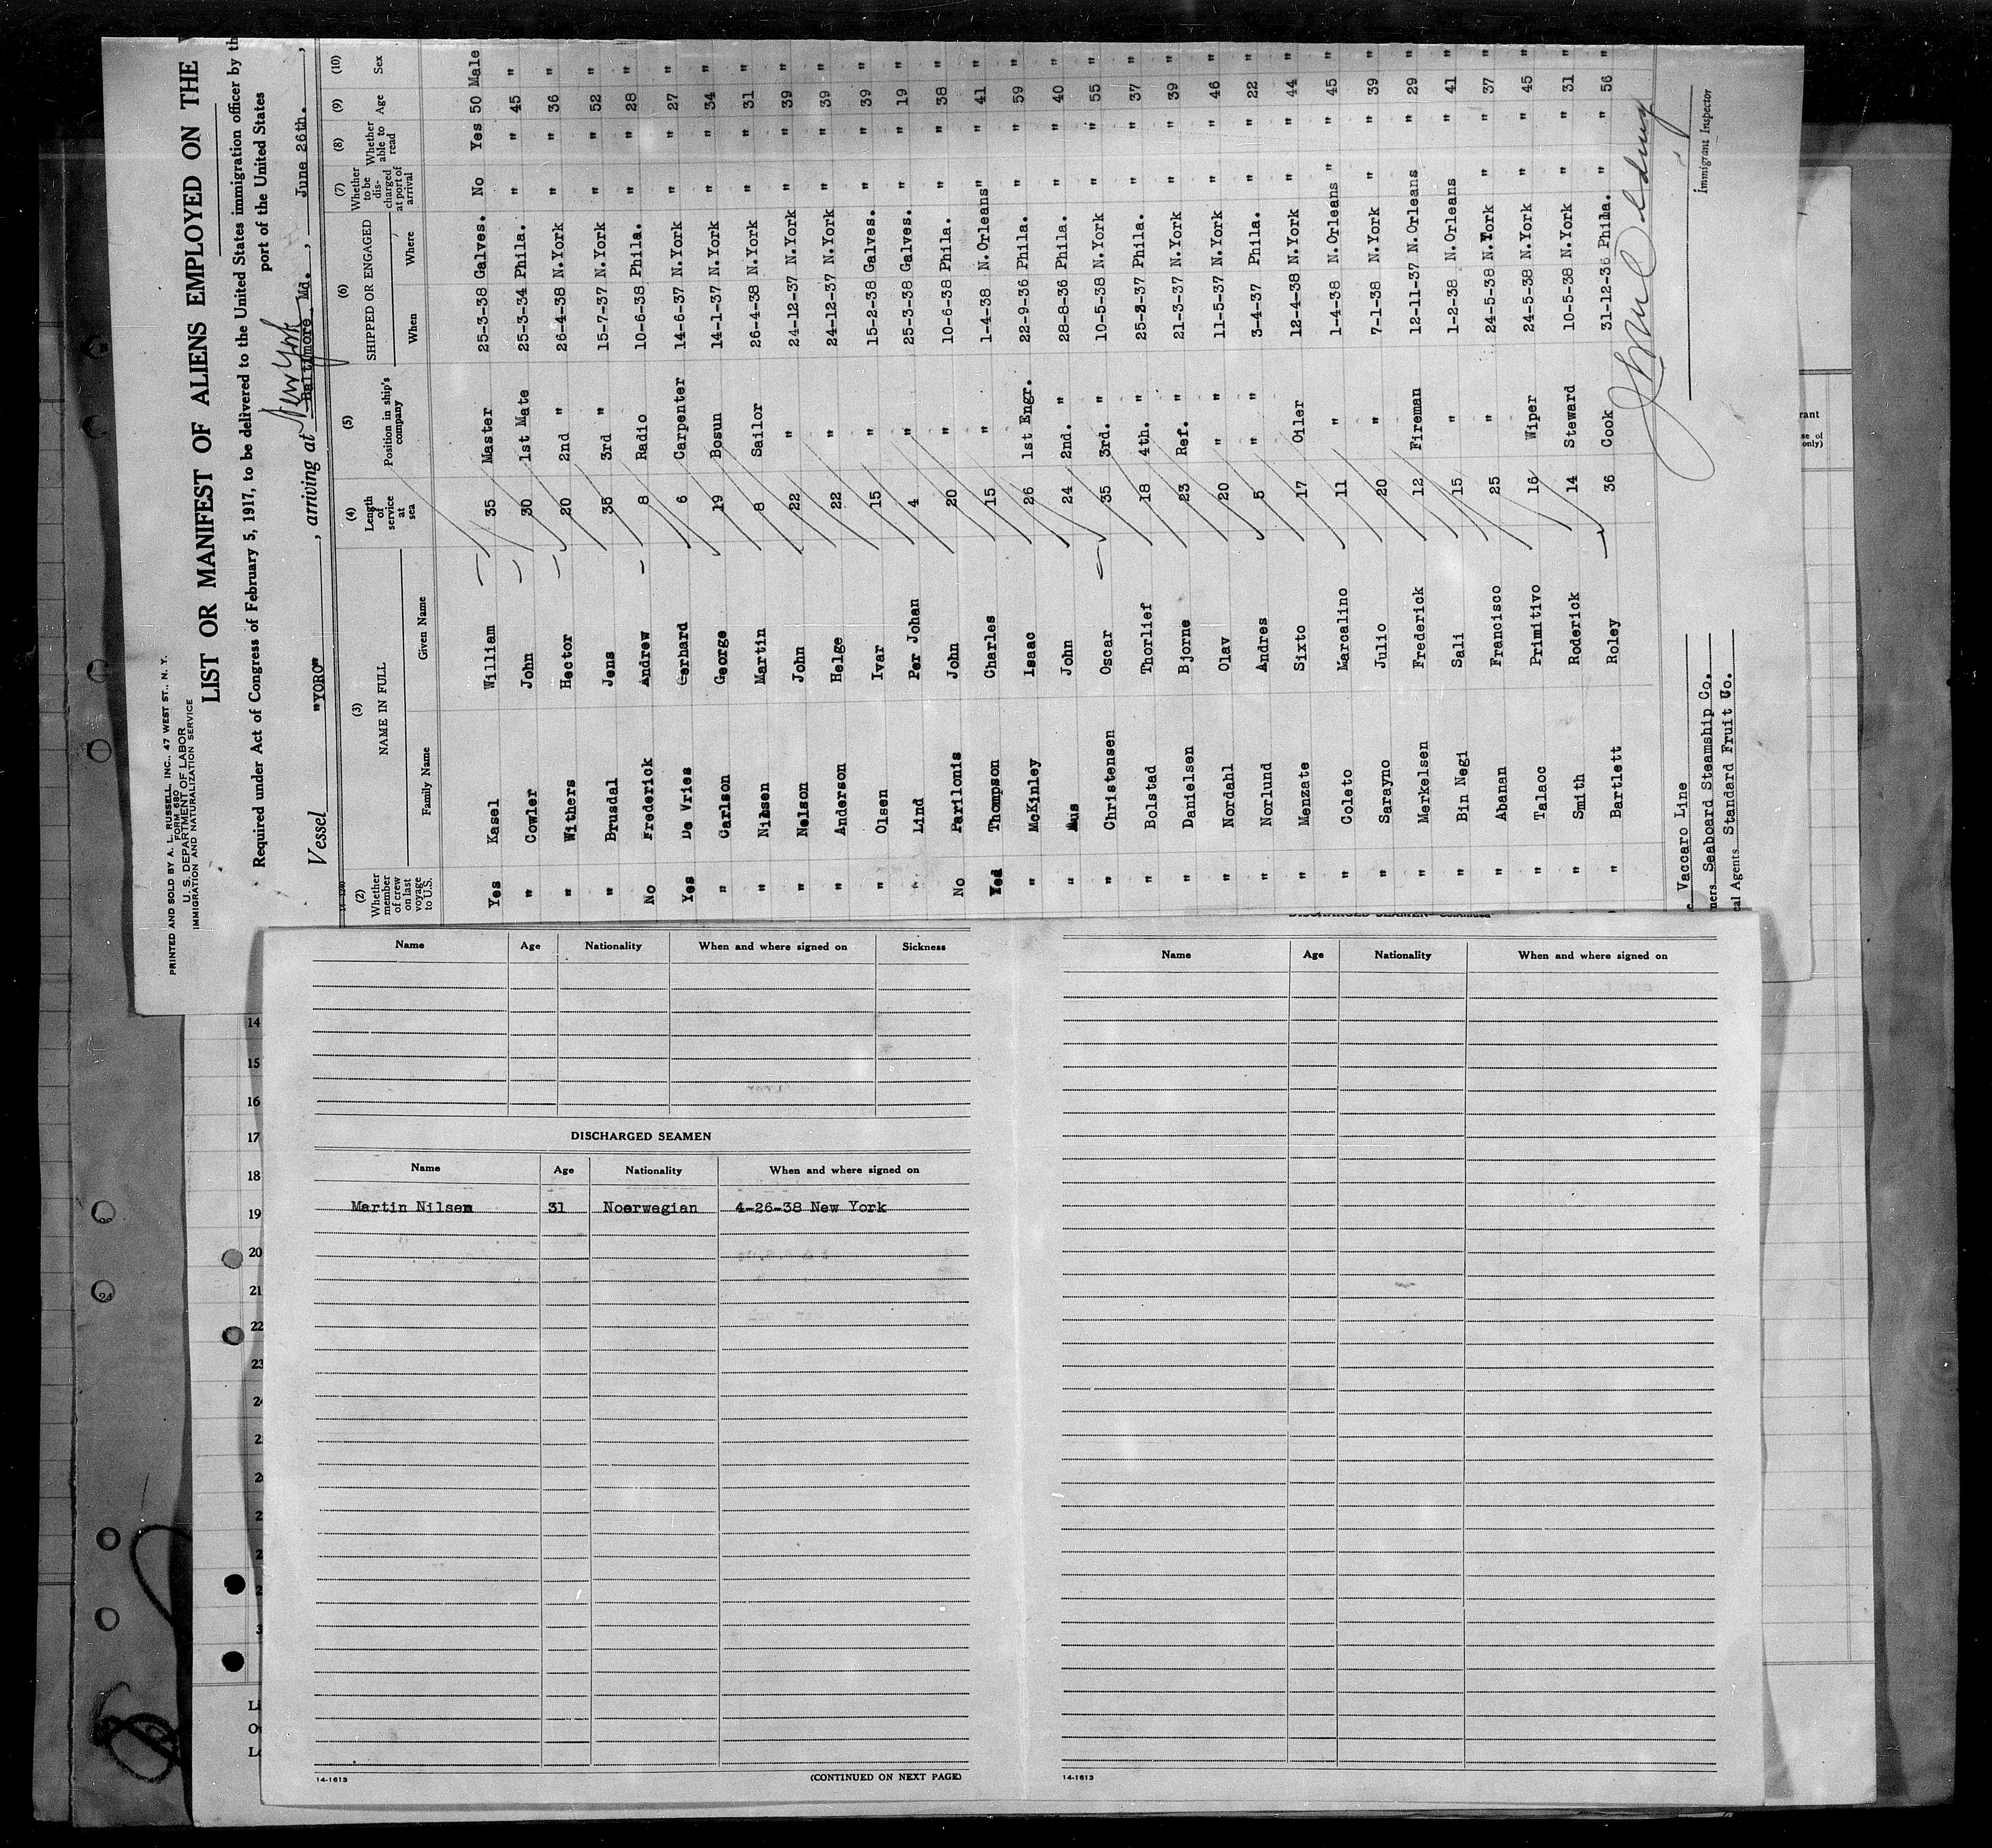 PRINTED AND SOLD BY A. L. RUSSELL, INC., 47 WEST ST., N. Y.
FORM 680
U. S. DEPARTMENT OF LABOR
IMMIGRATION AND NATURALIZATION SERVICE
LIST OR MANIFEST OF ALIENS EMPLOYED ON THE
Required under Act of Congress of February 5, 1917, to be delivered to the United States immigration officer by th
port of the United States
Vessel "YORO" , arriving at Baltimore Md. , June 26th. ,
New York
14-1240
(2) (3) (4) (5) (6) (7) (8) (9) (10)
Whether member of crew on last voyage to U.S. NAME IN FULL Length of service at sea Position in ship's company SHIPPED OR ENGAGED Whether to be discharged at port of arrival Whether able to read Age Sex
Family Name Given Name When Where
Yes Kasel William 35 Master 25-3-38 Galves. No Yes 50 Male
" Cowler John 30 1st Mate 25-3-34 Phila. " " 45 "
" Withers Hector 20 2nd " 26-4-38 N.York " " 36 "
" Brusdal Jens 35 3rd " 15-7-37 N.York " " 52 "
No Frederick Andrew 8 Radio 10-6-38 Phila. " " 28 "
Yes De Vries Gerhard 6 Carpenter 14-6-37 N.York " " 27 "
" Carlson George 19 Bosun 14-1-37 N.York " " 34 "
" Nilsen Martin 8 Sailor 26-4-38 N.York " " 31 "
" Nelson John 22 " 24-12-37 N.York " " 39 "
" Anderson Helge 22 " 24-12-37 N.York " " 39 "
" Olsen Ivar 15 " 15-2-38 Galves. " " 39 "
" Lind Per Johan 4 " 25-3-38 Galves. " " 19 "
No Parilonis John 20 " 10-6-38 Phila. " " 38 "
Yed Thompson Charles 15 " 1-4-38 N.Orleans" " 41 "
" McKinley Isaac 26 1st Engr. 22-9-36 Phila. " " 59 "
" Aus John 24 2nd. " 28-8-36 Phila. " " 40 "
" Christensen Oscar 35 3rd. " 10-5-38 N.York " " 55 "
" Bolstad Thorlief 18 4th. " 25-2-37 Phila. " " 37 "
" Danielsen Bjorne 23 Ref. " 21-3-37 N.York " " 39 "
" Nordahl Olav 20 " " 11-5-37 N.York " " 46 "
" Norlund Andres 5 " " 3-4-37 Phila. " " 22 "
" Menzate Sixto 17 Oiler 12-4-38 N.York " " 44 "
" Coleto Marcalino 11 " 1-4-38 N.Orleans " " 45 "
" Sarayno Julio 20 " 7-1-38 N.York " " 39 "
" Merkelsen Frederick 12 Fireman 12-11-37 N.Orleans " 29 "
" Bin Negi Sali 15 " 1-2-38 N.Orleans " 41 "
" Abanan Francisco 25 " 24-5-38 N.York " " 37 "
" Talaoc Primitivo 16 Wiper 24-5-38 N.York " " 45 "
" Smith Roderick 14 Steward 10-5-38 N.York " " 31 "
" Bartlett Roley 36 Cook 31-12-36 Phila. " " 56 "
Vaccaro Line
ners Seaboard Steamship Co.
cal Agents Standard Fruit Co.
Immigrant Inspector
Name Age Nationality When and where signed on Sickness
DISCHARGED SEAMEN
Name Age Nationality When and where signed on
Martin Nilsen 31 Noerwegian 4-26-38 New York
14-1613
(CONTINUED ON NEXT PAGE)
Name Age Nationality When and where signed on
14-1613
14
15
16
17
18
19
20
21
22
23
24
rant
only)